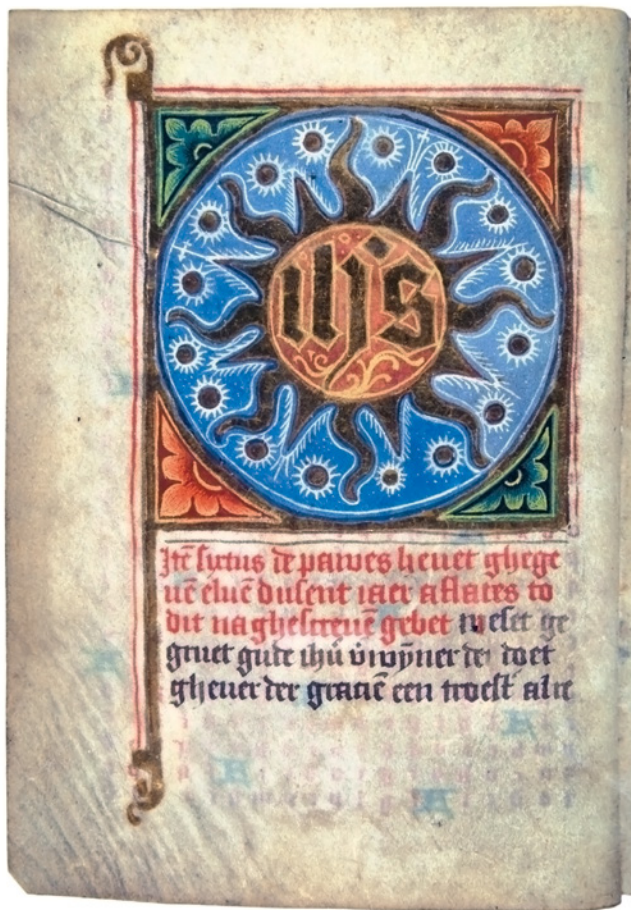 ihs
Itē sixtus de pawes heuet ghege
uē eluē dusent iaer aflates to
dit na ghescreuē gebet weset ge
gruet gude ihū v̄wyn̄er der doet
gheuer der graciē een troest alre